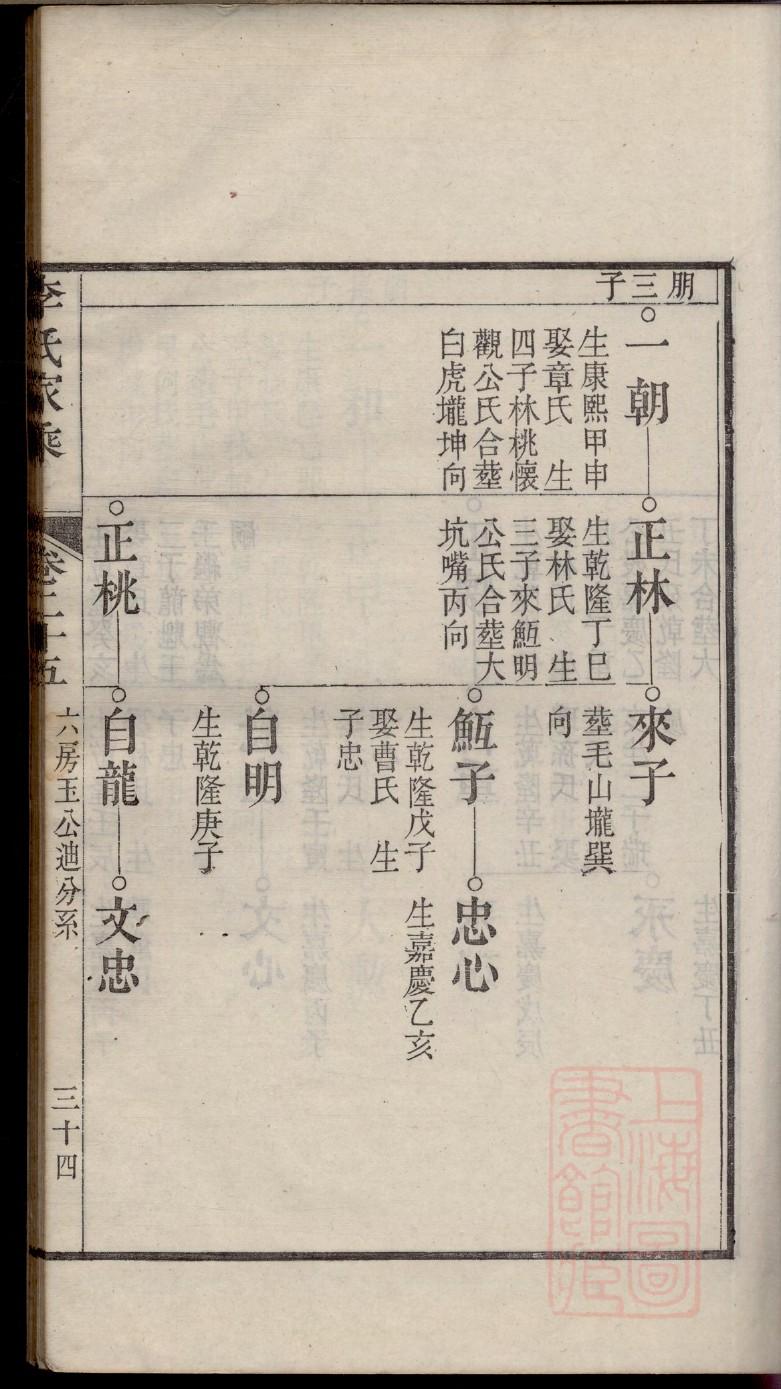 朋三子
一朝
生康熙甲申
娶章氏 生
四子林桃懷
觀公氏合塟
白虎壠坤向
正林
生乾隆丁巳
娶林氏 生
三子來䱍明
公氏合塟大
坑嘴丙向
正桃
來子
塟毛山壠巽
向
䱍子
生乾隆戊子
娶曹氏 生
子忠
自明
生乾隆庚子
自龍
忠心
生嘉慶乙亥
文忠
李氏家乘
卷二十五
六房玉公迪分系
三十四
上海圖書館藏